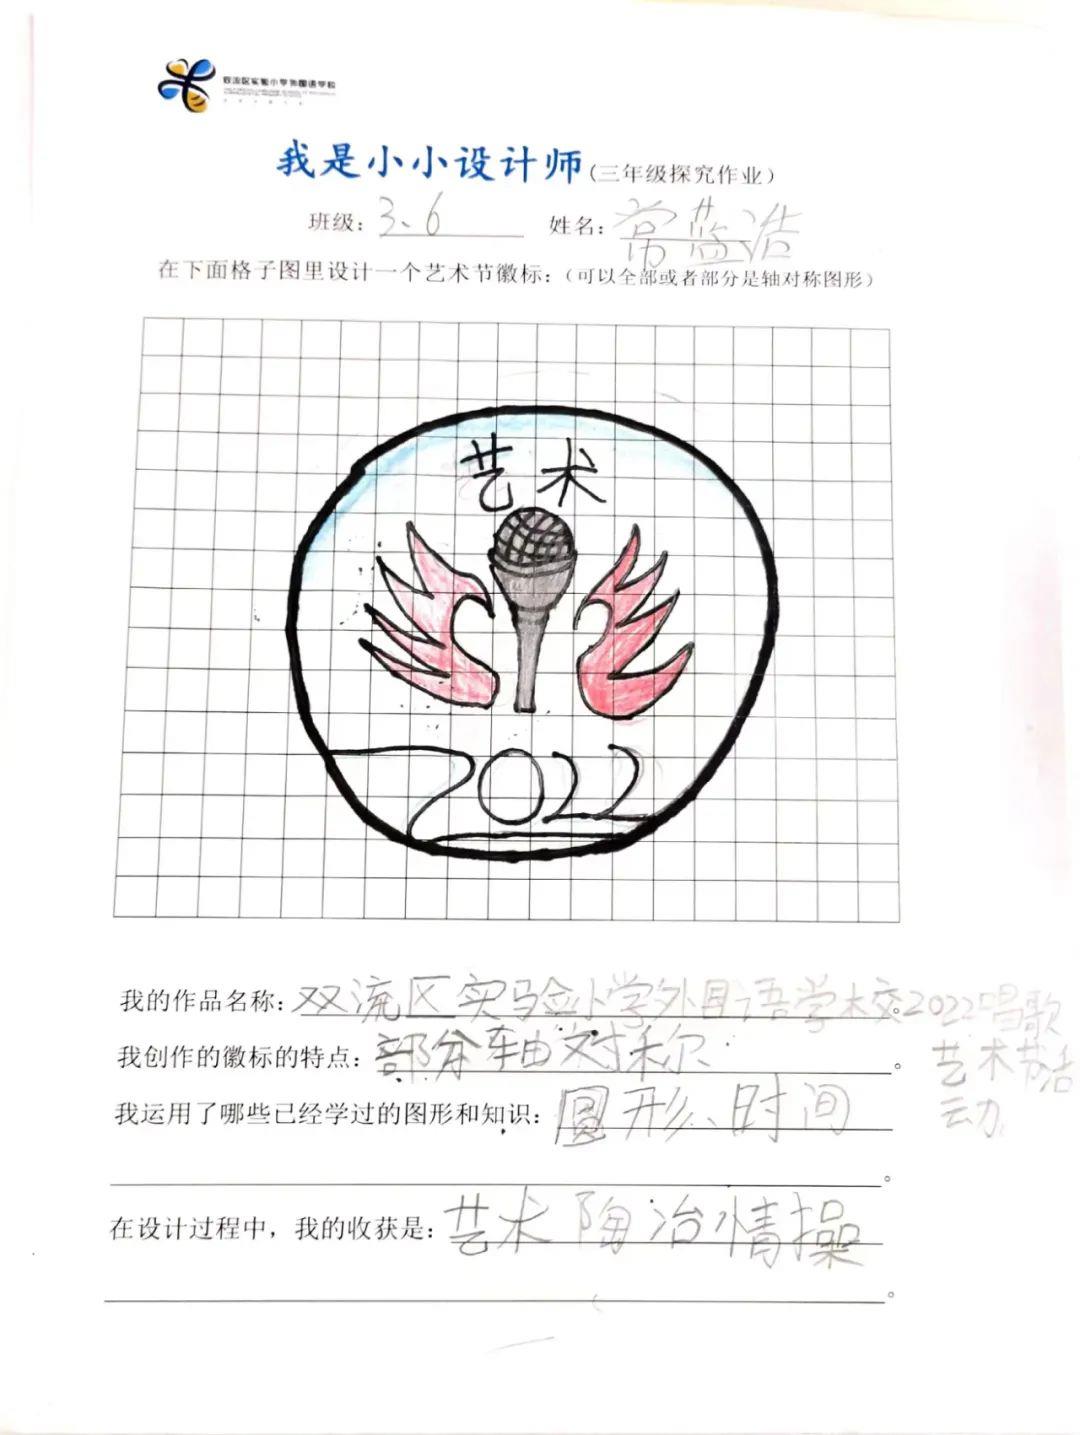 双流区实验小学外国语学校
我是小小设计师(三年级探究作业)
班级：3、6 姓名：常蓝浩
在下面格子图里设计一个艺术节徽标：（可以全部或者部分是轴对称图形）
艺术
2022
我的作品名称：双流区实验小学外国语学校2022唱歌
艺术节活
动
我创作的徽标的特点：部分轴对称。
我运用了哪些已经学过的图形和知识：圆形、时间
。
在设计过程中，我的收获是：艺术陶冶情操
。